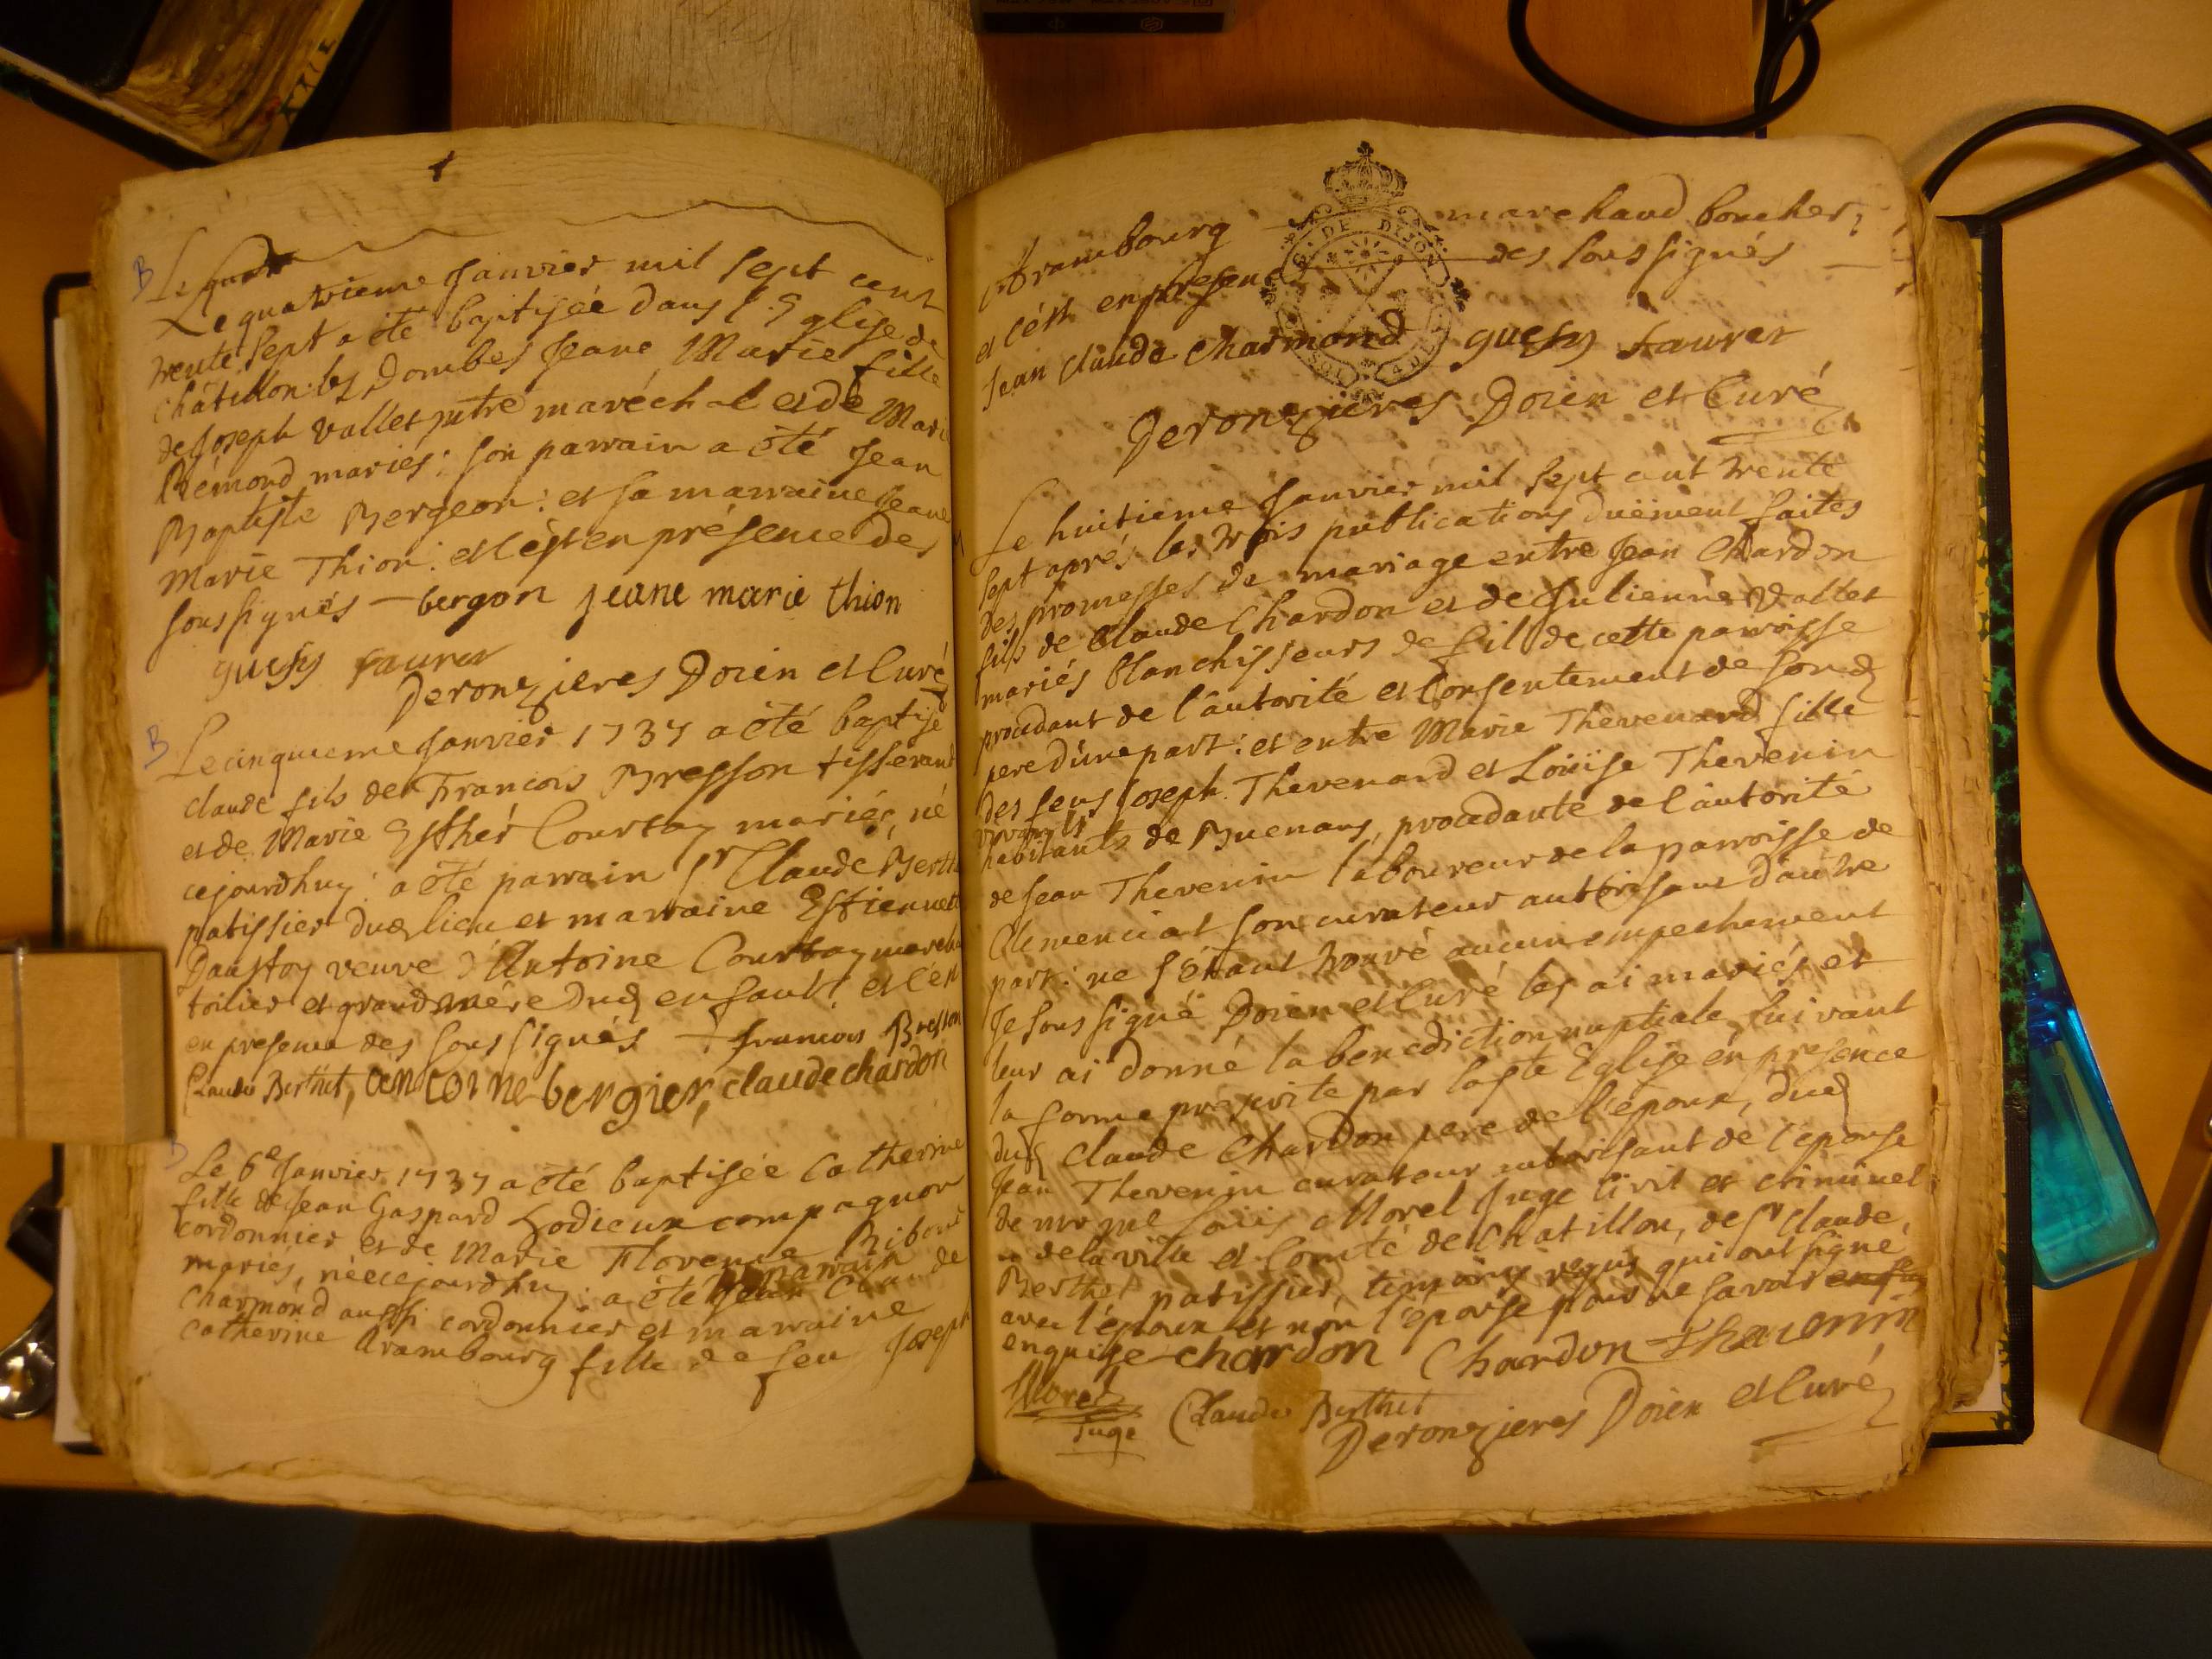 B Le quat
Le quatrieme Janvier mil sept cent
trente sept a été baptisée dans l'Eglise de
châtillon les Dombes Jeane Marie fille
de Joseph Vallet mtre maréchal et de Mari
Rémond mariés: son parrain a été Jean
Baptiste Bergeon: et sa marraine Jeane
Marie Thion: et c'est en présence des
soussignés — bergon jeane marie thion
guesy saurer
Deronzieres Doien et Curé
B Le cinquieme Janvier 1737 a été baptisé
claude fils de Francois Bresson tisserand
et de Marie Esther Courtoy mariés, né
cejourdhuy: a été parrain Sr Claude Berth
patissier dud lieu et marraine Estiennett
Daustoy veuve d'Antoine Courtoy march
toilier et grand mère dud enfant: et c'est
en presence des soussignés francois Bresson
Claude Berthet, antoine bergier, claude chardon
Le 6e Janvier 1737 a été baptisée Catherine
fille de Jean Gaspard Lodieux compagnon
cordonnier et de Marie Florence Riboud
mariés, née cejourdhuy: a été parrain
Jean Claude
Charmond aussi cordonnier et marraine
Catherine Arambourg fille de feu Joseph
Arambourg marchand boucher;
et c'est en presence des soussignés
DE DIJON
Jean claude charmond guesy saurer
Deronzieres Doien et Curé
Le huitieme Janvier mil sept cent trente
sept aprés les trois publications duëment faites
des promesses de mariage entre Jean Chardon
fils de Claude Chardon et de Julienne Vallet
mariés blanchisseurs de fil de cette parroisse
procedant de l'autorité et consentement de sond
pere d'une part: et entre Marie Thevenard fille
des feus Joseph Thevenard et Loüise Thevenin
vivants
habitants de Buenans, procedante de l'autorité
de Jean Thevenin laboureur de la parroisse de
Clemenciat son curateur autorisant d'autre
part: ne s'étant trouvé aucun empechement
Je soussigné Doien et Curé les ai mariés et
leur ai donné la benediction nuptiale suivant
la forme prescrite par la ste Eglise en presence
dud Claude Chardon pere de l'époux, dud
Jean Thevenin curateur autorisant de l'epouse
de mre Loüis Morel Juge Civil et criminel
de la ville et Comté de Chatillon, de Sr Claude
Berthet patissier, temoins requis qui ont signé
avec l'époux et non l'epouse pour ne savoir
enquise chardon Chardon Thevenin
Morel
Juge
Claude Berthet
Deronzieres Doien et Curé